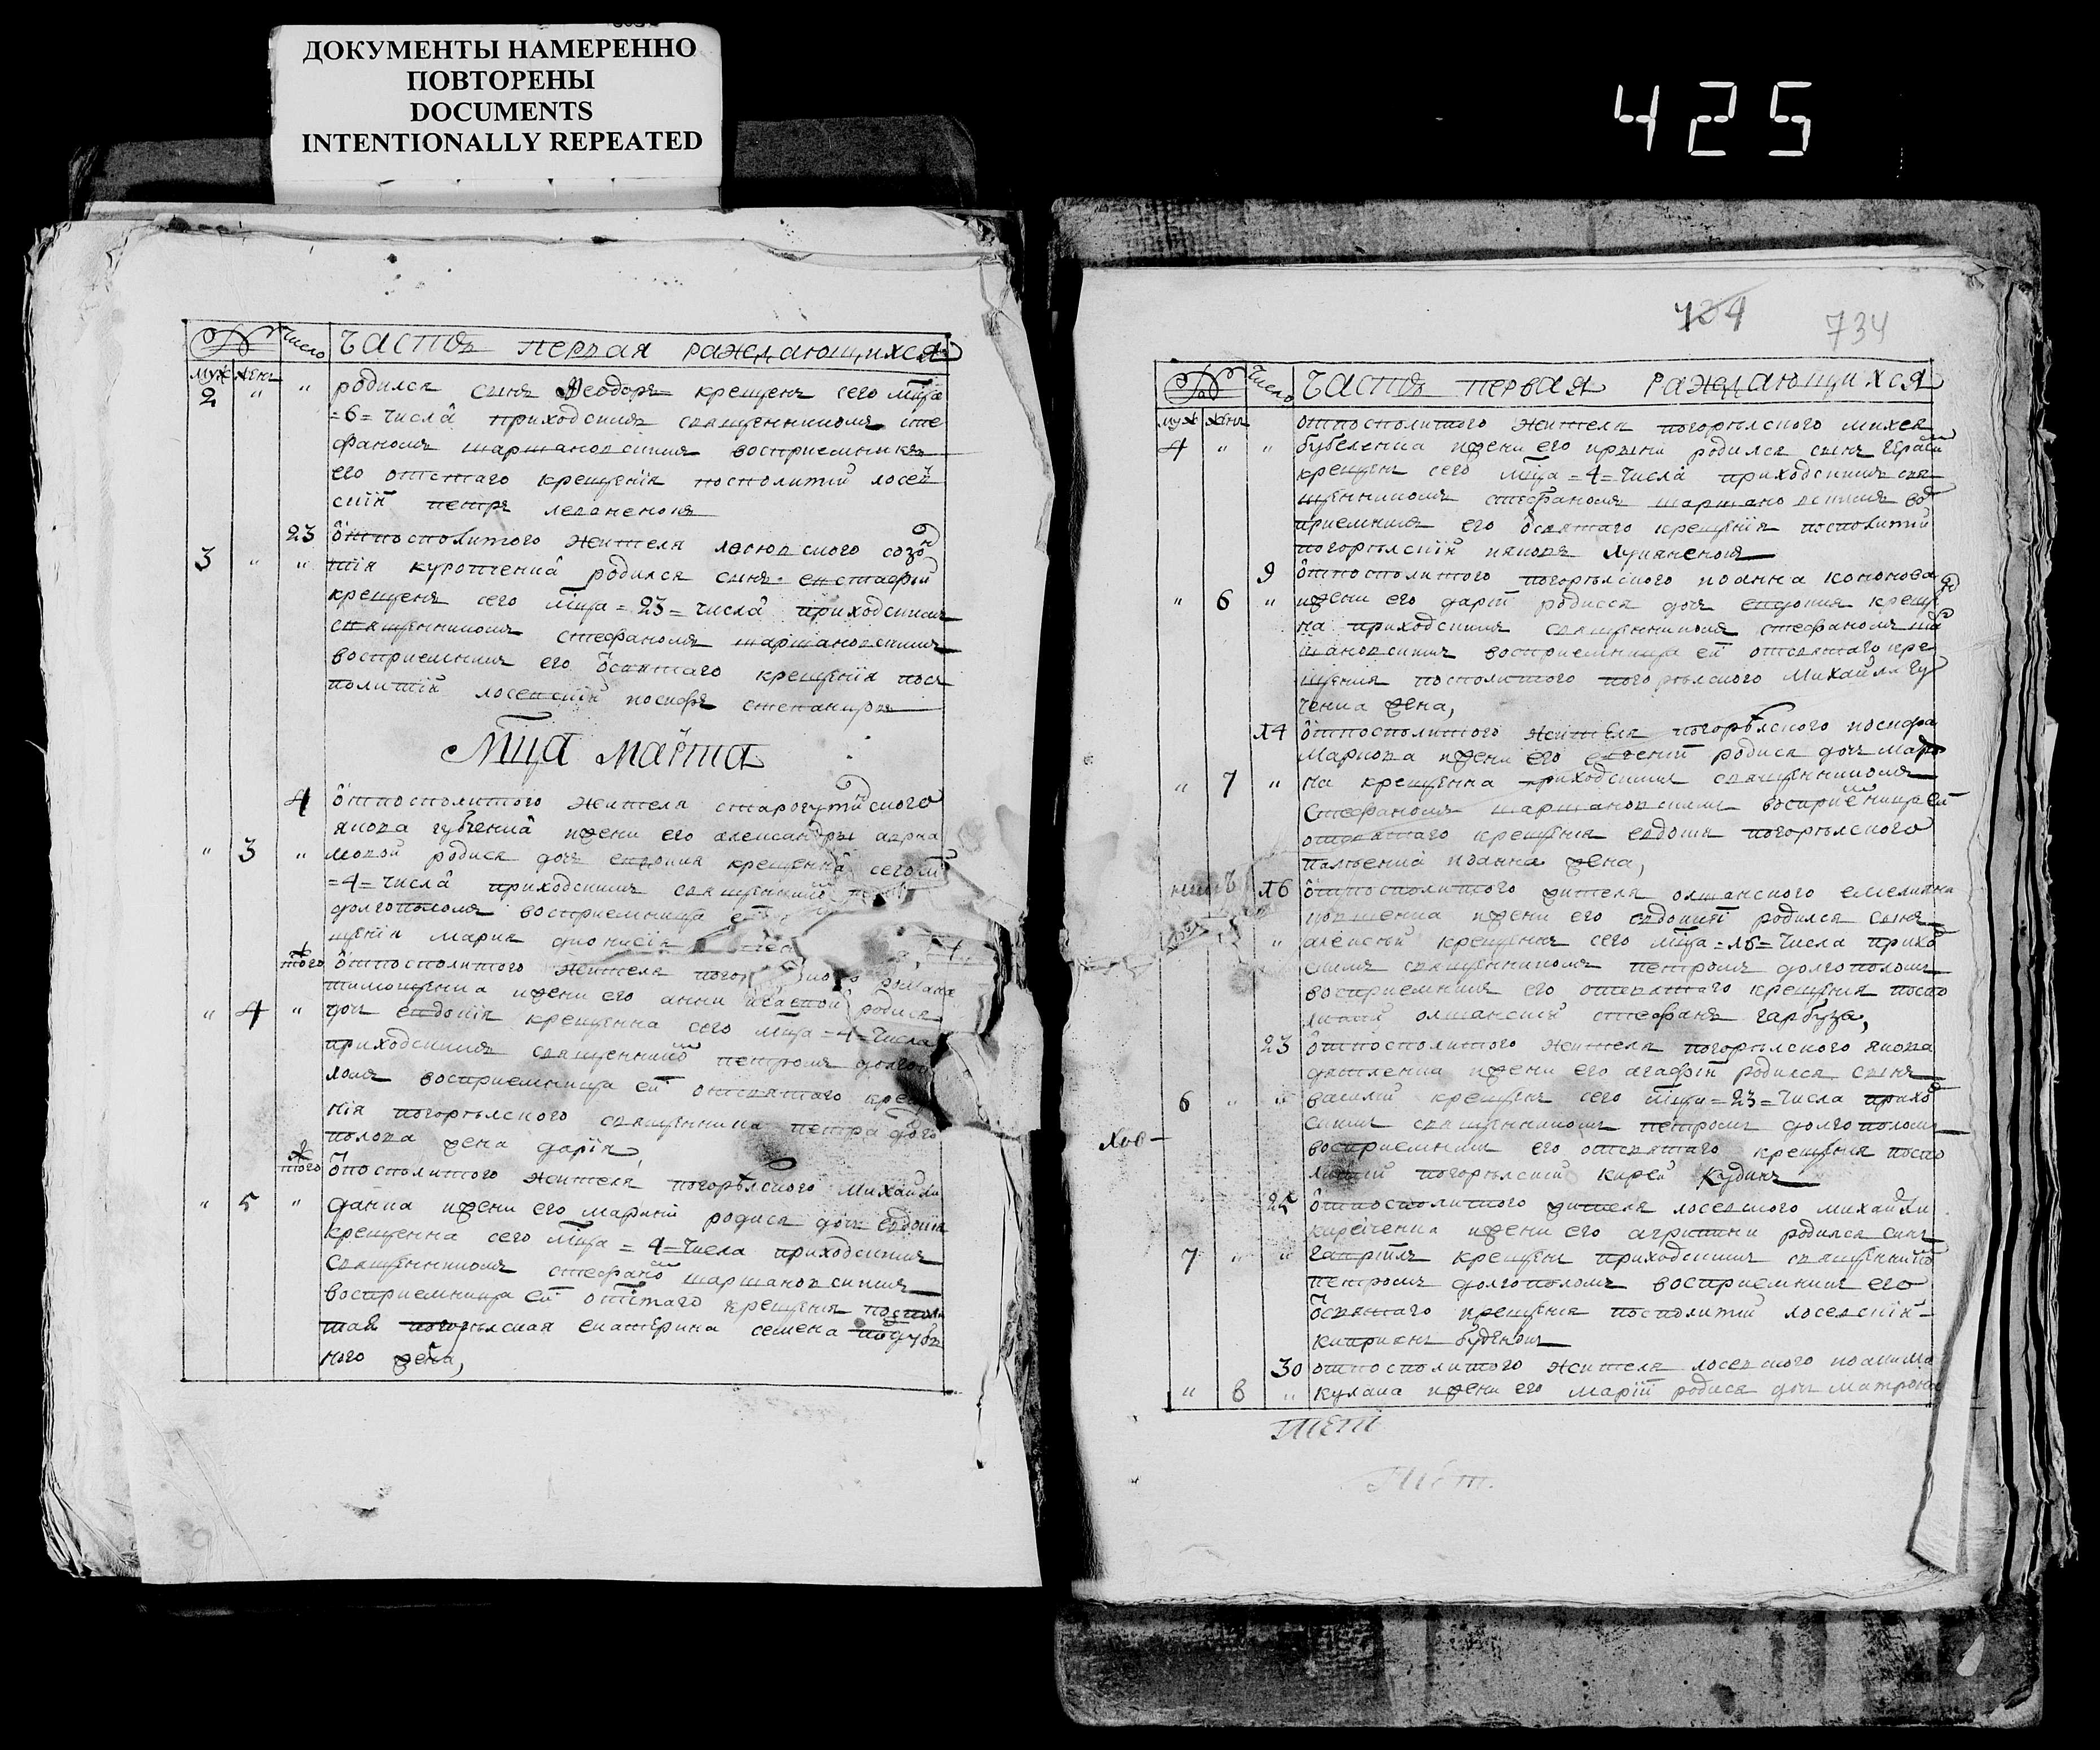 ДОКУМЕНТЫ НАМЕРЕННО
ПОВТОРЕНЫ
DOCUMENTS
INTENTIONALLY REPEATED
425
№ Число Часть первая раждающихся
муж женъ
2 " " родился сынъ Феодоръ крещенъ сего мца
=6= числа приходскимъ священникомъ сте
фаномъ шаршановскимъ восприемникъ
его отстаго крещения посполитий лосев
ский петръ
23 отпосполитого жителя лосювского созон
3 " " тия куропченка родился сынъ евстафий
крещенъ сего мца =23= числа приходскимъ
священникомъ стефаномъ шаршановскимъ
восприемникъ его освятаго крещения посъ
политий лосевский иосифъ степанцовъ
Мца марта
4 отпосполитого жителя старогутянского
якова губченка жени его александры авраа
" 3 " мовой родися дочь евдокия крещенна сего м
=4= числа приходскимъ священником
долгополомъ восприемница ей
щения мария дионисия
того отпосполитого жителя романа
тимощенка жени его анни родися
" 4 " дочь евдокия крещенна сего мца =4= числа
приходскимъ священником петромъ долгопо
ломъ восприемница ей отсвятаго креще
ния погорълского священника петра долго
полова жена дария
того отпосполитого жителя погорълского михайла
" 5 " данка жени его марини родися дочь евдокия
крещенна сего мца =4= числа приходскимъ
священникомъ стефаном шаршановскимъ
восприемница ей отстаго крещения посполи
тая погорълская екатерина семена поддуб
ного жена,
734
№ Число Часть первая раждающихся
муж женъ отпосполитого жителя погорълского михея
4 " " бубсленка жени его ирыни родился сынъ герасим
крещенъ сего мца =4= числа приходскимъ свя
щенникомъ стефаномъ шаршановскимъ вос
приемникъ его освятаго крещения посполитий
погорълский яковъ лукяненокъ
9 отпосполитого погорълского иоанна кононова
" 6 " жени его дарий родися дочь евдокия креще
на приходскимъ священникомъ стефаномъ шар
шановскимъ восприемница ей отсвятаго кре
щения посполитого погорълского михайла гу
ченка жена,
14 отпосполитого жителя погорълского иосифа
маркова жени его родися дочь мар
" 7 " на крещенна приходскимъ священникомъ
стефаномъ шаршановскимъ восприемница ей
отсвятаго крещения евдокия погорълского
иоанна жена,
16 отпосполитого жителя олшанского емелияна
жени его евдокий родился сынъ
" алексъй крещенъ сего мца =16= числа приход
скимъ священникомъ петромъ долгополомъ
восприемникъ его отсвятаго крещения поспо
литий олшанский стефанъ гарбуза,
23 отпосполитого жителя погорълского якова
дятленка жени его агафий родился сынъ
6 " " василий крещенъ сего мца =23= числа приход
скимъ священникомъ петромъ долгополомъ
восприемникъ его отсвятаго крещения поспо
литий погорълский кирей кудинъ
25 отпосполитого жителя лосевского михайла
киреченка жени его агрипини родился синъ
7 " " гаврилъ крещенъ приходскимъ священником
петромъ долгополомъ восприемникъ его
освятаго крещения посполитий лосевский
киприянъ буденокъ
30 отпосполитого жителя лосевского иоакима
" 8 " кулака жени его марий родися дочь матрона